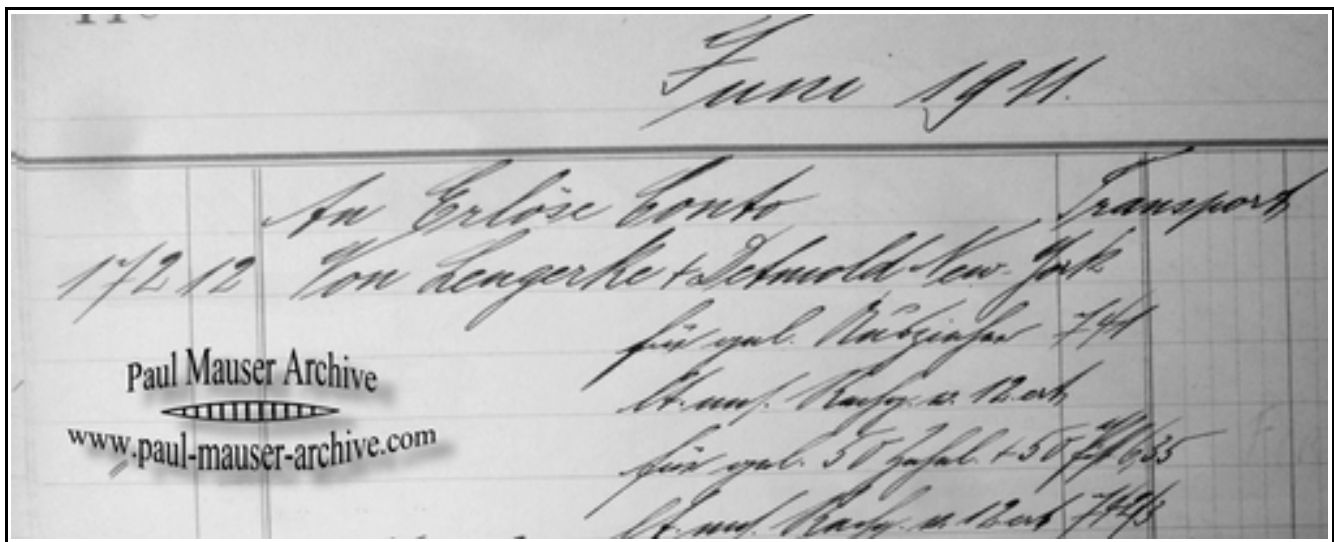 Juni 1911.
An Erlöse Conto Transport
172 12 Von Lengerke + Detmold New-York
für gel. 741
lt. uns. v. 12. ert
für gel. 50 + 50 6,35
lt. uns. v. 12. ert 742/3
Paul Mauser Archive
www.paul-mauser-archive.com